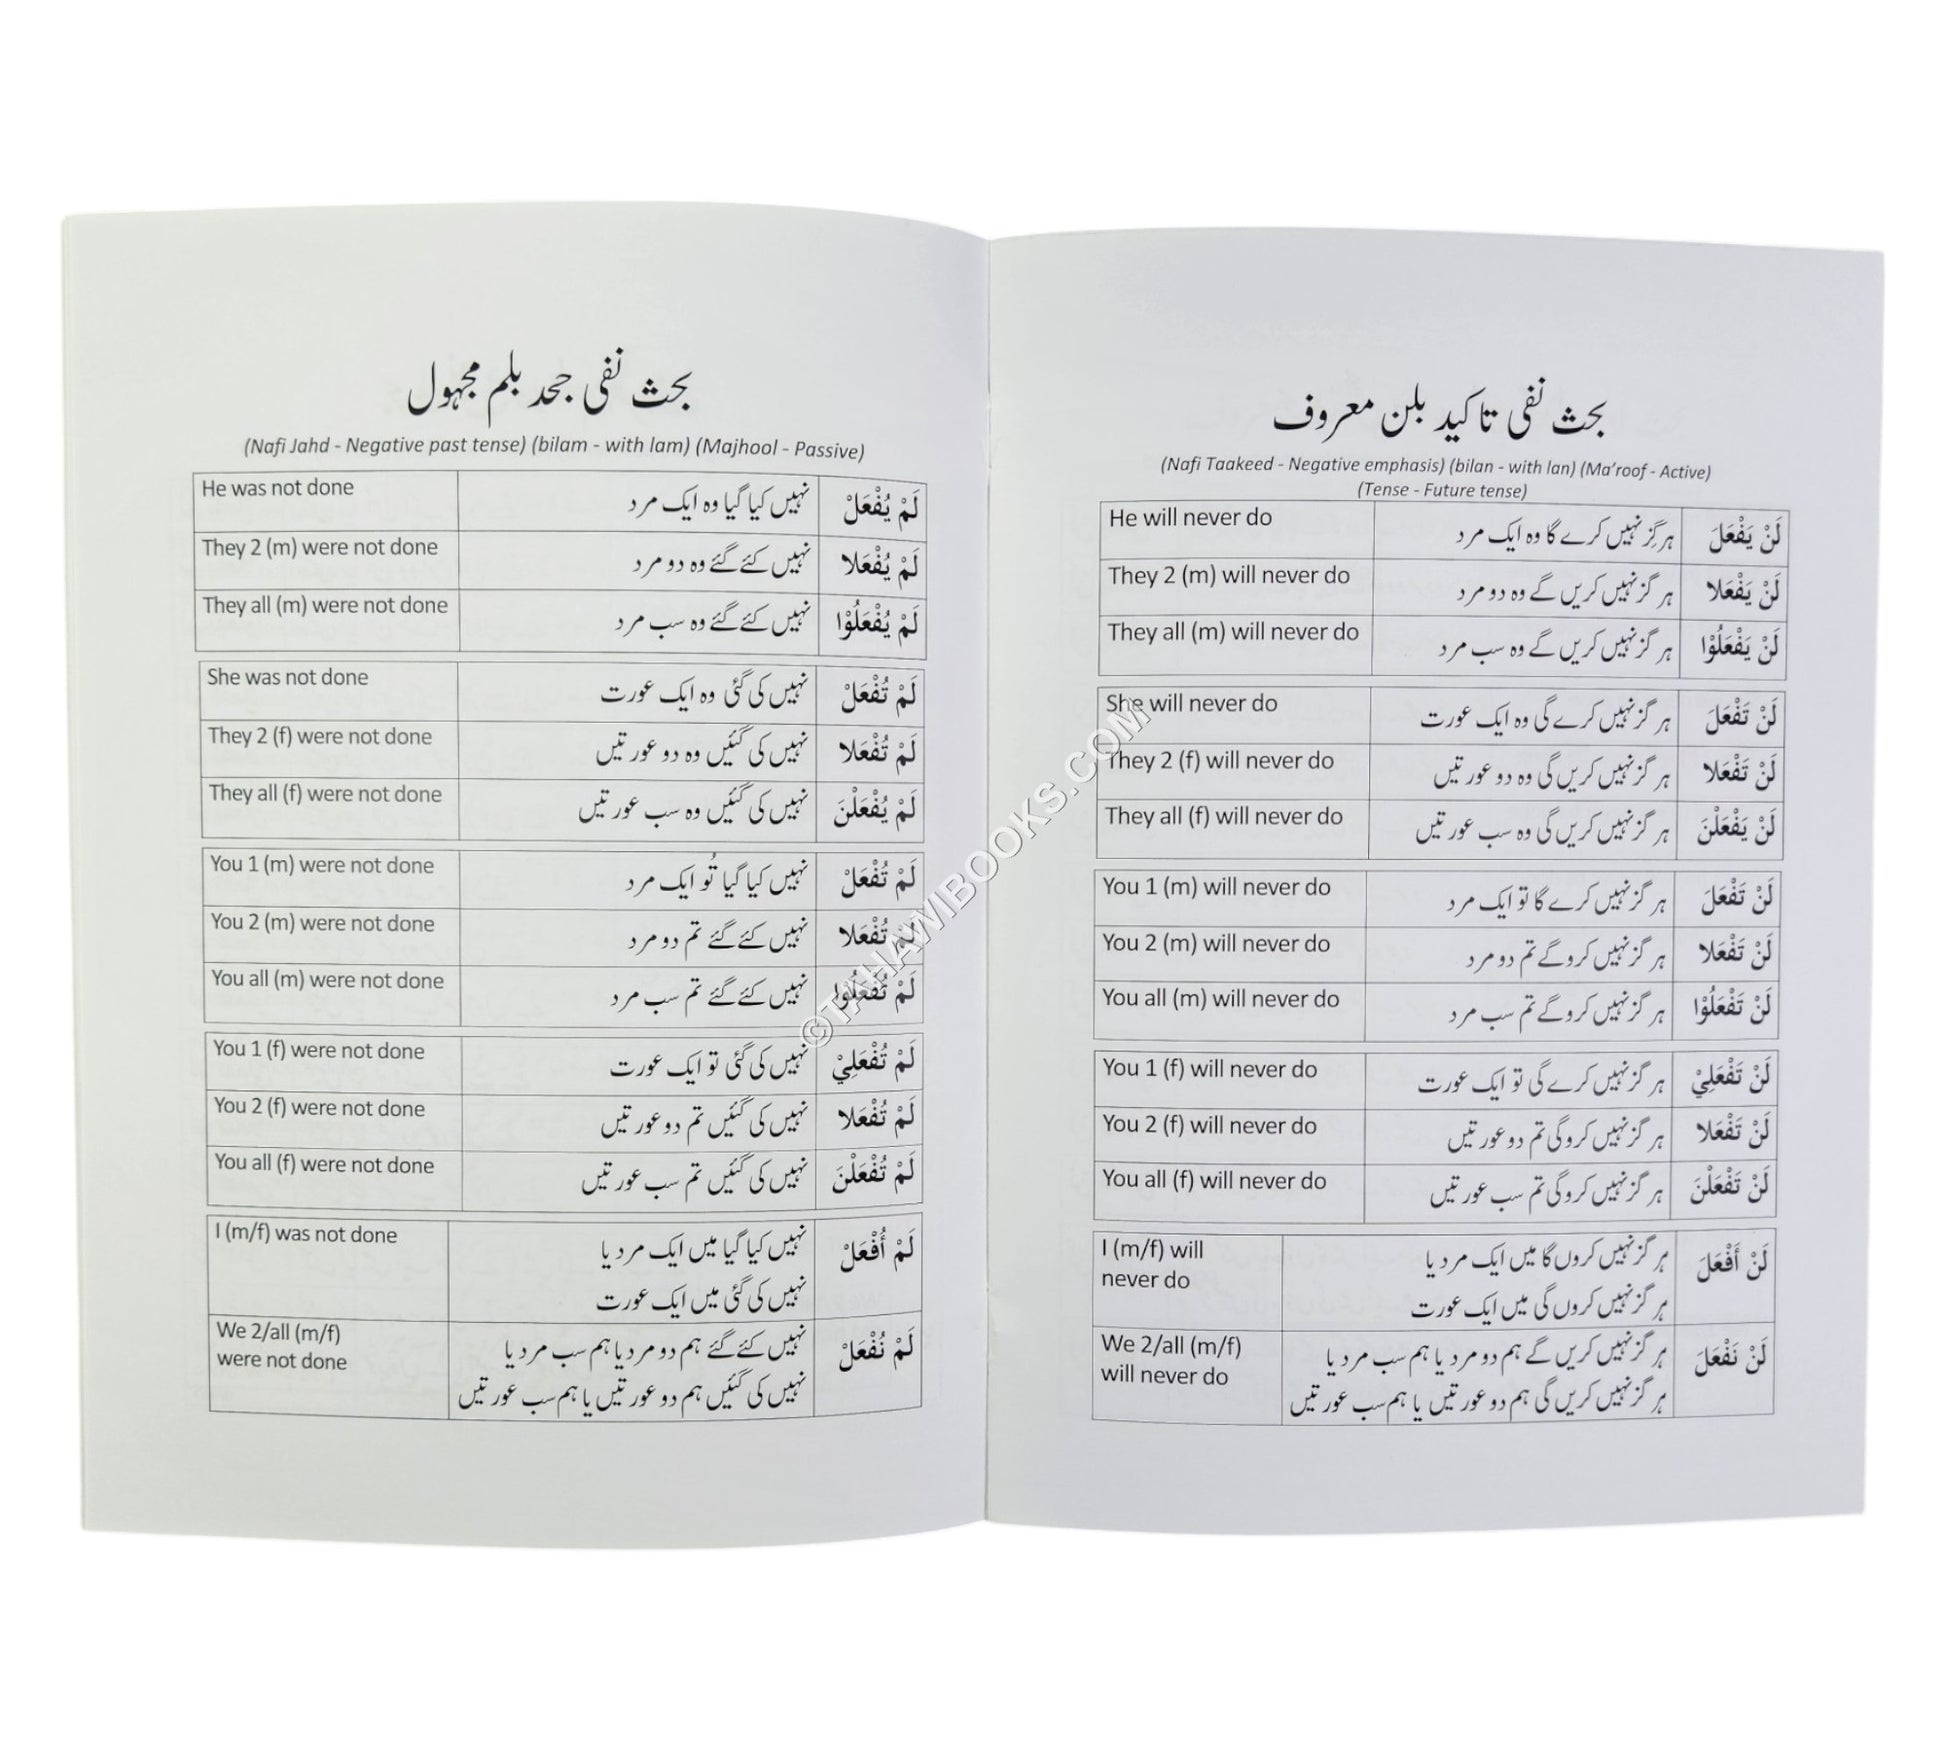 بحث نفی جحد بلم مجہول
(Nafi Jahd - Negative past tense) (bilam - with lam) (Majhool - Passive)
He was not done نہیں کیا گیا وہ ایک مرد لَمْ يُفْعَلْ
They 2 (m) were not done نہیں کئے گئے وہ دو مرد لَمْ يُفْعَلا
They all (m) were not done نہیں کئے گئے وہ سب مرد لَمْ يُفْعَلُوْا
She was not done نہیں کی گئی وہ ایک عورت لَمْ تُفْعَلْ
They 2 (f) were not done نہیں کی گئیں وہ دو عورتیں لَمْ تُفْعَلا
They all (f) were not done نہیں کی گئیں وہ سب عورتیں لَمْ يُفْعَلْنَ
You 1 (m) were not done نہیں کیا گیا تُو ایک مرد لَمْ تُفْعَلْ
You 2 (m) were not done نہیں کئے گئے تم دو مرد لَمْ تُفْعَلا
You all (m) were not done نہیں کئے گئے تم سب مرد لَمْ تُفْعَلُوْا
You 1 (f) were not done نہیں کی گئی تو ایک عورت لَمْ تُفْعَلِيْ
You 2 (f) were not done نہیں کی گئیں تم دو عورتیں لَمْ تُفْعَلا
You all (f) were not done نہیں کی گئیں تم سب عورتیں لَمْ تُفْعَلْنَ
I (m/f) was not done نہیں کیا گیا میں ایک مرد یا لَمْ أُفْعَلْ
نہیں کی گئی میں ایک عورت
We 2/all (m/f) نہیں کئے گئے ہم دو مرد یا ہم سب مرد یا لَمْ نُفْعَلْ
were not done نہیں کی گئیں ہم دو عورتیں یا ہم سب عورتیں
بحث نفی تاکید بلن معروف
(Nafi Taakeed - Negative emphasis) (bilan - with lan) (Ma'roof - Active)
(Tense - Future tense)
He will never do ہرگز نہیں کرے گا وہ ایک مرد لَنْ يَفْعَلَ
They 2 (m) will never do ہرگز نہیں کریں گے وہ دو مرد لَنْ يَفْعَلا
They all (m) will never do ہرگز نہیں کریں گے وہ سب مرد لَنْ يَفْعَلُوْا
She will never do ہرگز نہیں کرے گی وہ ایک عورت لَنْ تَفْعَلَ
They 2 (f) will never do ہرگز نہیں کریں گی وہ دو عورتیں لَنْ تَفْعَلا
They all (f) will never do ہرگز نہیں کریں گی وہ سب عورتیں لَنْ يَفْعَلْنَ
You 1 (m) will never do ہرگز نہیں کرے گا تو ایک مرد لَنْ تَفْعَلَ
You 2 (m) will never do ہرگز نہیں کروگے تم دو مرد لَنْ تَفْعَلا
You all (m) will never do ہرگز نہیں کروگے تم سب مرد لَنْ تَفْعَلُوْا
You 1 (f) will never do ہرگز نہیں کرے گی تو ایک عورت لَنْ تَفْعَلِيْ
You 2 (f) will never do ہرگز نہیں کروگی تم دو عورتیں لَنْ تَفْعَلا
You all (f) will never do ہرگز نہیں کروگی تم سب عورتیں لَنْ تَفْعَلْنَ
I (m/f) will ہرگز نہیں کروں گا میں ایک مرد یا لَنْ أَفْعَلَ
never do ہرگز نہیں کروں گی میں ایک عورت
We 2/all (m/f) ہرگز نہیں کریں گے ہم دو مرد یا ہم سب مرد یا لَنْ نَفْعَلَ
will never do ہرگز نہیں کریں گی ہم دو عورتیں یا ہم سب عورتیں
©TAHAWIBOOKS.COM